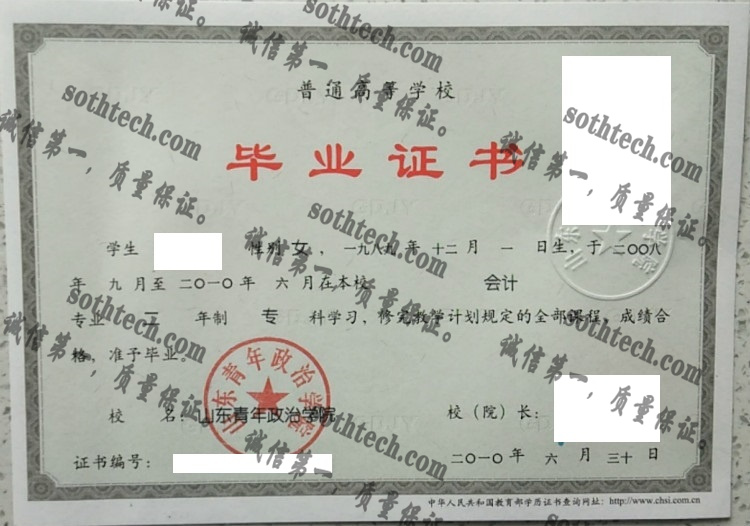 普通高等学校
毕业证书
学生 性别 女，一九八九年 十二月 一 日生，于 二〇〇八
年 九月至 二〇一〇年 六月在本校 会计
专业 三 年制 专 科学习，修完教学计划规定的全部课程，成绩合
格，准予毕业。
校 名：山东青年政治学院 校（院）长：
山东青年政治学院
证书编号： 二〇一〇年 六 月 三十日
中华人民共和国教育部学历证书查询网址：http://www.chsi.com.cn
sothtech.com
诚信第一，质量保证。
sothtech.com
诚信第一，质量保证。
sothtech.com
诚信第一，质量保证。
sothtech.com
诚信第一，质量保证。
sothtech.com
诚信第一，质量保证。
sothtech.com
诚信第一，质量保证。
sothtech.com
诚信第一，质量保证。
sothtech.com
诚信第一，质量保证。